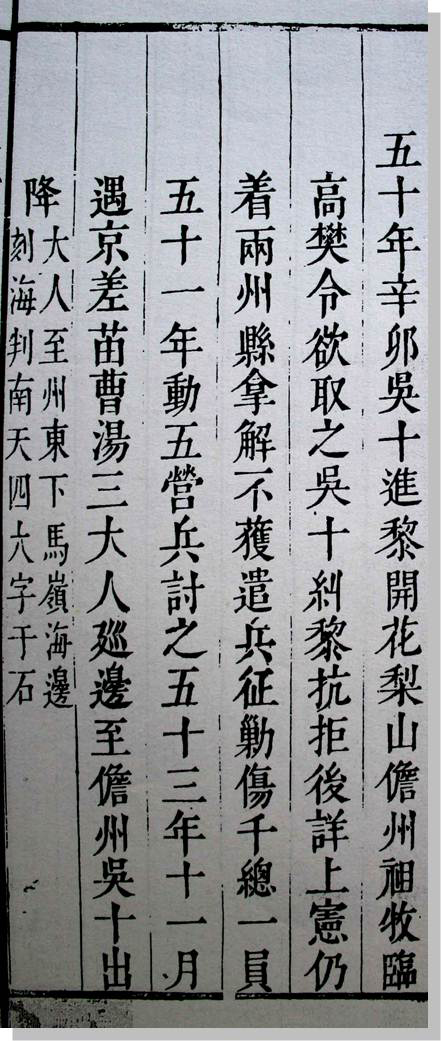 五十年辛卯吳十進黎開花梨山儋州祖牧臨
高樊令欲取之吳十糾黎抗拒後詳上憲仍
着兩州縣拿解不獲遣兵征勦傷千總一員
五十一年動五營兵討之五十三年十一月
遇京差苗曹湯三大人廵邊至儋州吳十出
降
大人至州東下馬嶺海邊
刻海判南天四大字于石